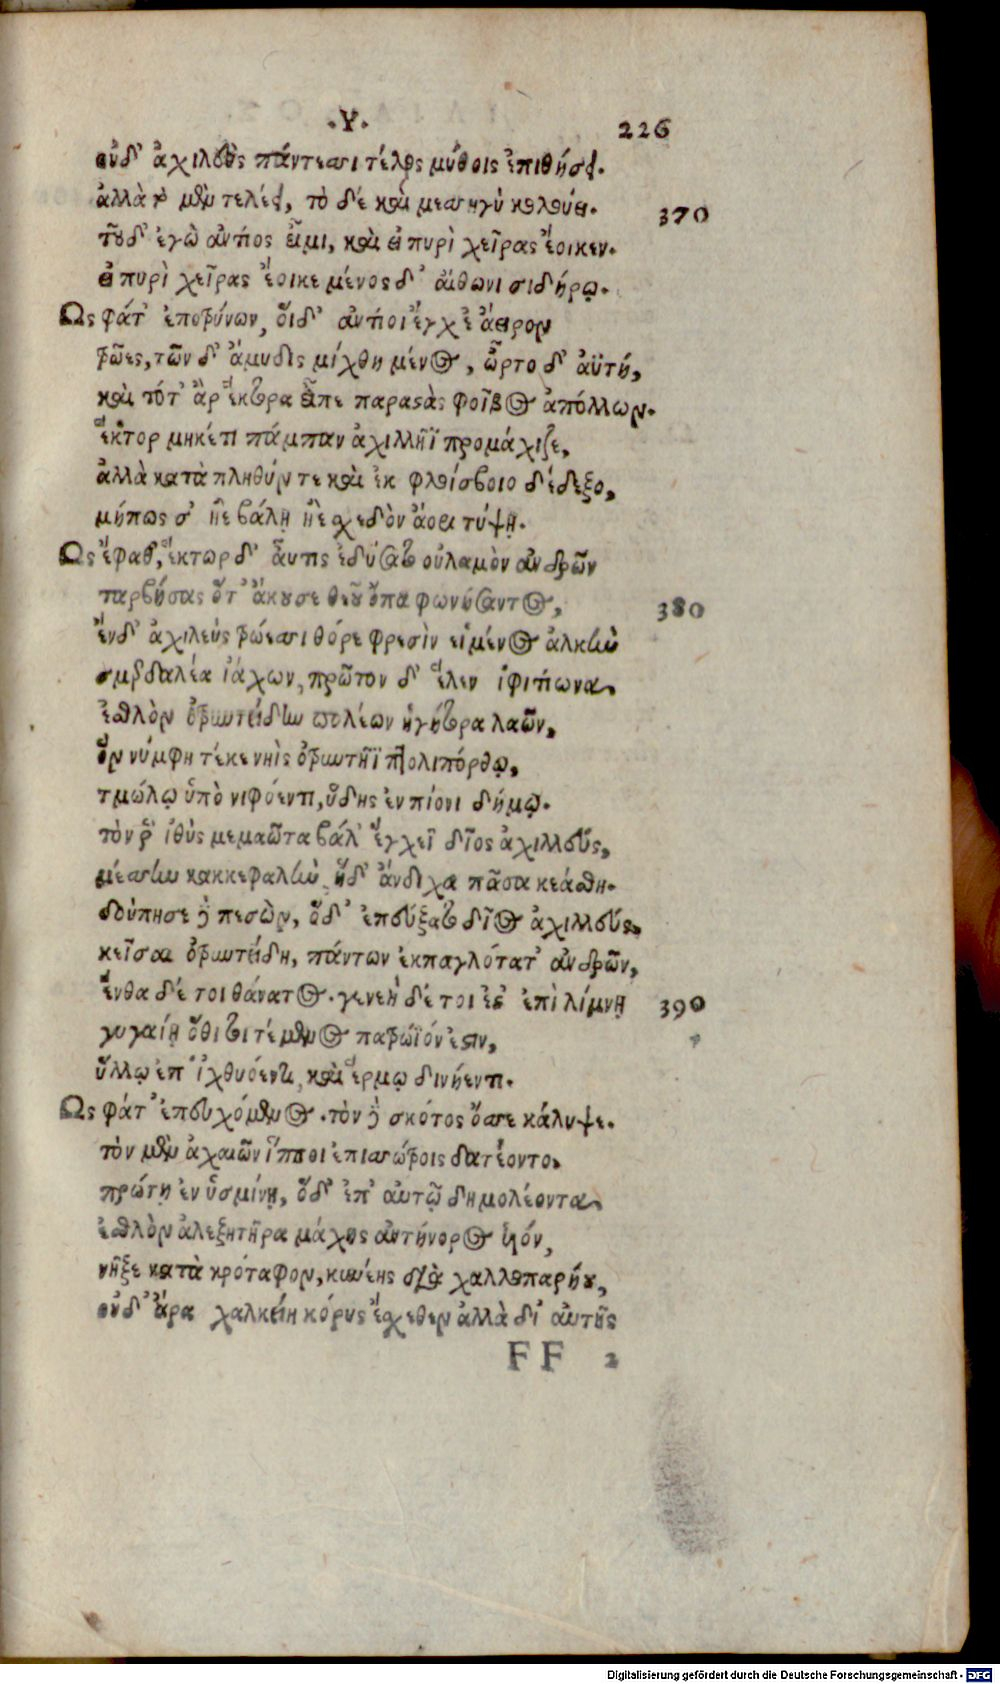 .Υ.
226
οὐδ' ἀχιλεὺς πάντεσσι τέλος μύθοις ἐπιθήσει.
ἀλλὰ τὸ μὲν τελέει, τὸ δέ καὶ μεσσηγὺ κολούει.
370
τοῦ δ' ἐγὼ ἀντίος εἶμι, καὶ εἰ πυρὶ χεῖρας ἔοικεν.
εἰ πυρὶ χεῖρας ἔοικε μένος δ' αἴθωνι σιδήρῳ.
Ως φάτ' ἐποτρύνων, οἵδ' ἀντίοι ἔγχε' ἄειρον
τρῶες, τῶν δ' ἄμυδις μίχθη μένος, ὦρτο δ' ἀϋτή,
καὶ τότ' ἂρ ἕκτορα εἶπε παραστὰς φοῖβος ἀπόλλων.
ἕκτορ μηκέτι πάμπαν ἀχιλλῆϊ προμάχιζε,
ἀλλὰ κατὰ πληθύν τε καὶ ἐκ φλοίσβοιο δέδεξο,
μήπως σ' ἠὲ βάλῃ ἠὲ σχεδὸν ἄορι τύψῃ.
Ως ἔφαθ', ἕκτωρ δ' αὖτις ἐδύσατο οὐλαμὸν ἀνδρῶν
ταρβήσας ὅτ' ἄκουσε θεοῦ ὄπα φωνήσαντος,
380
ἔνδ' ἀχιλεὺς τρώεσσι θόρε φρεσὶν εἱμένος ἀλκὴν
σμερδαλέα ἰάχων, πρῶτον δ' ἕλεν ἰφιτίωνα
ἐσθλὸν ὀτρυντείδην πολέων ἡγήτορα λαῶν,
ὃν νύμφη τέκε νηὶς ὀτρυντῆϊ πτολιπόρθῳ,
τμώλῳ ὑπὸ νιφόεντι, ὕδης ἐν πίονι δήμῳ.
τὸν ῥ' ἰθὺς μεμαῶτα βάλ' ἔγχεϊ δῖος ἀχιλλεύς,
μέσσην κακκεφαλὴν, ἥδ' ἄνδιχα πᾶσα κεάσθη.
δούπησε δὲ πεσὼν, ὅδ' ἐπεύξατο δῖος ἀχιλλεύς,
κεῖσαι ὀτρυντείδη, πάντων ἐκπαγλότατ' ἀνδρῶν,
ἔνθα δέ τοι θάνατος. γενεὴ δέ τοι ἔστ' ἐπὶ λίμνῃ
390
γυγαίῃ ὅθι τοι τέμενος πατρώϊόν ἐστιν,
ὕλλῳ ἐπ' ἰχθυόεντι, καὶ ἕρμῳ δινήεντι.
Ως φάτ' ἐπευχόμενος. τὸν δὲ σκότος ὄσσε κάλυψε.
τὸν μὲν ἀχαιῶν ἵπποι ἐπισσώτροις δατέοντο,
πρώτῃ ἐν ὑσμίνῃ, ὅδ' ἐπ' αὐτῷ δημολέοντα
ἐσθλὸν ἀλεξητῆρα μάχης ἀντήνορος υἱόν,
νῆξε κατὰ κρόταφον, κυνέης διὰ χαλκοπαρήου,
οὐδ' ἄρα χαλκείη κόρυς ἔσχεθεν ἀλλὰ δι' αὐτῆς
FF 2
Digitalisierung gefördert durch die Deutsche Forschungsgemeinschaft - DFG